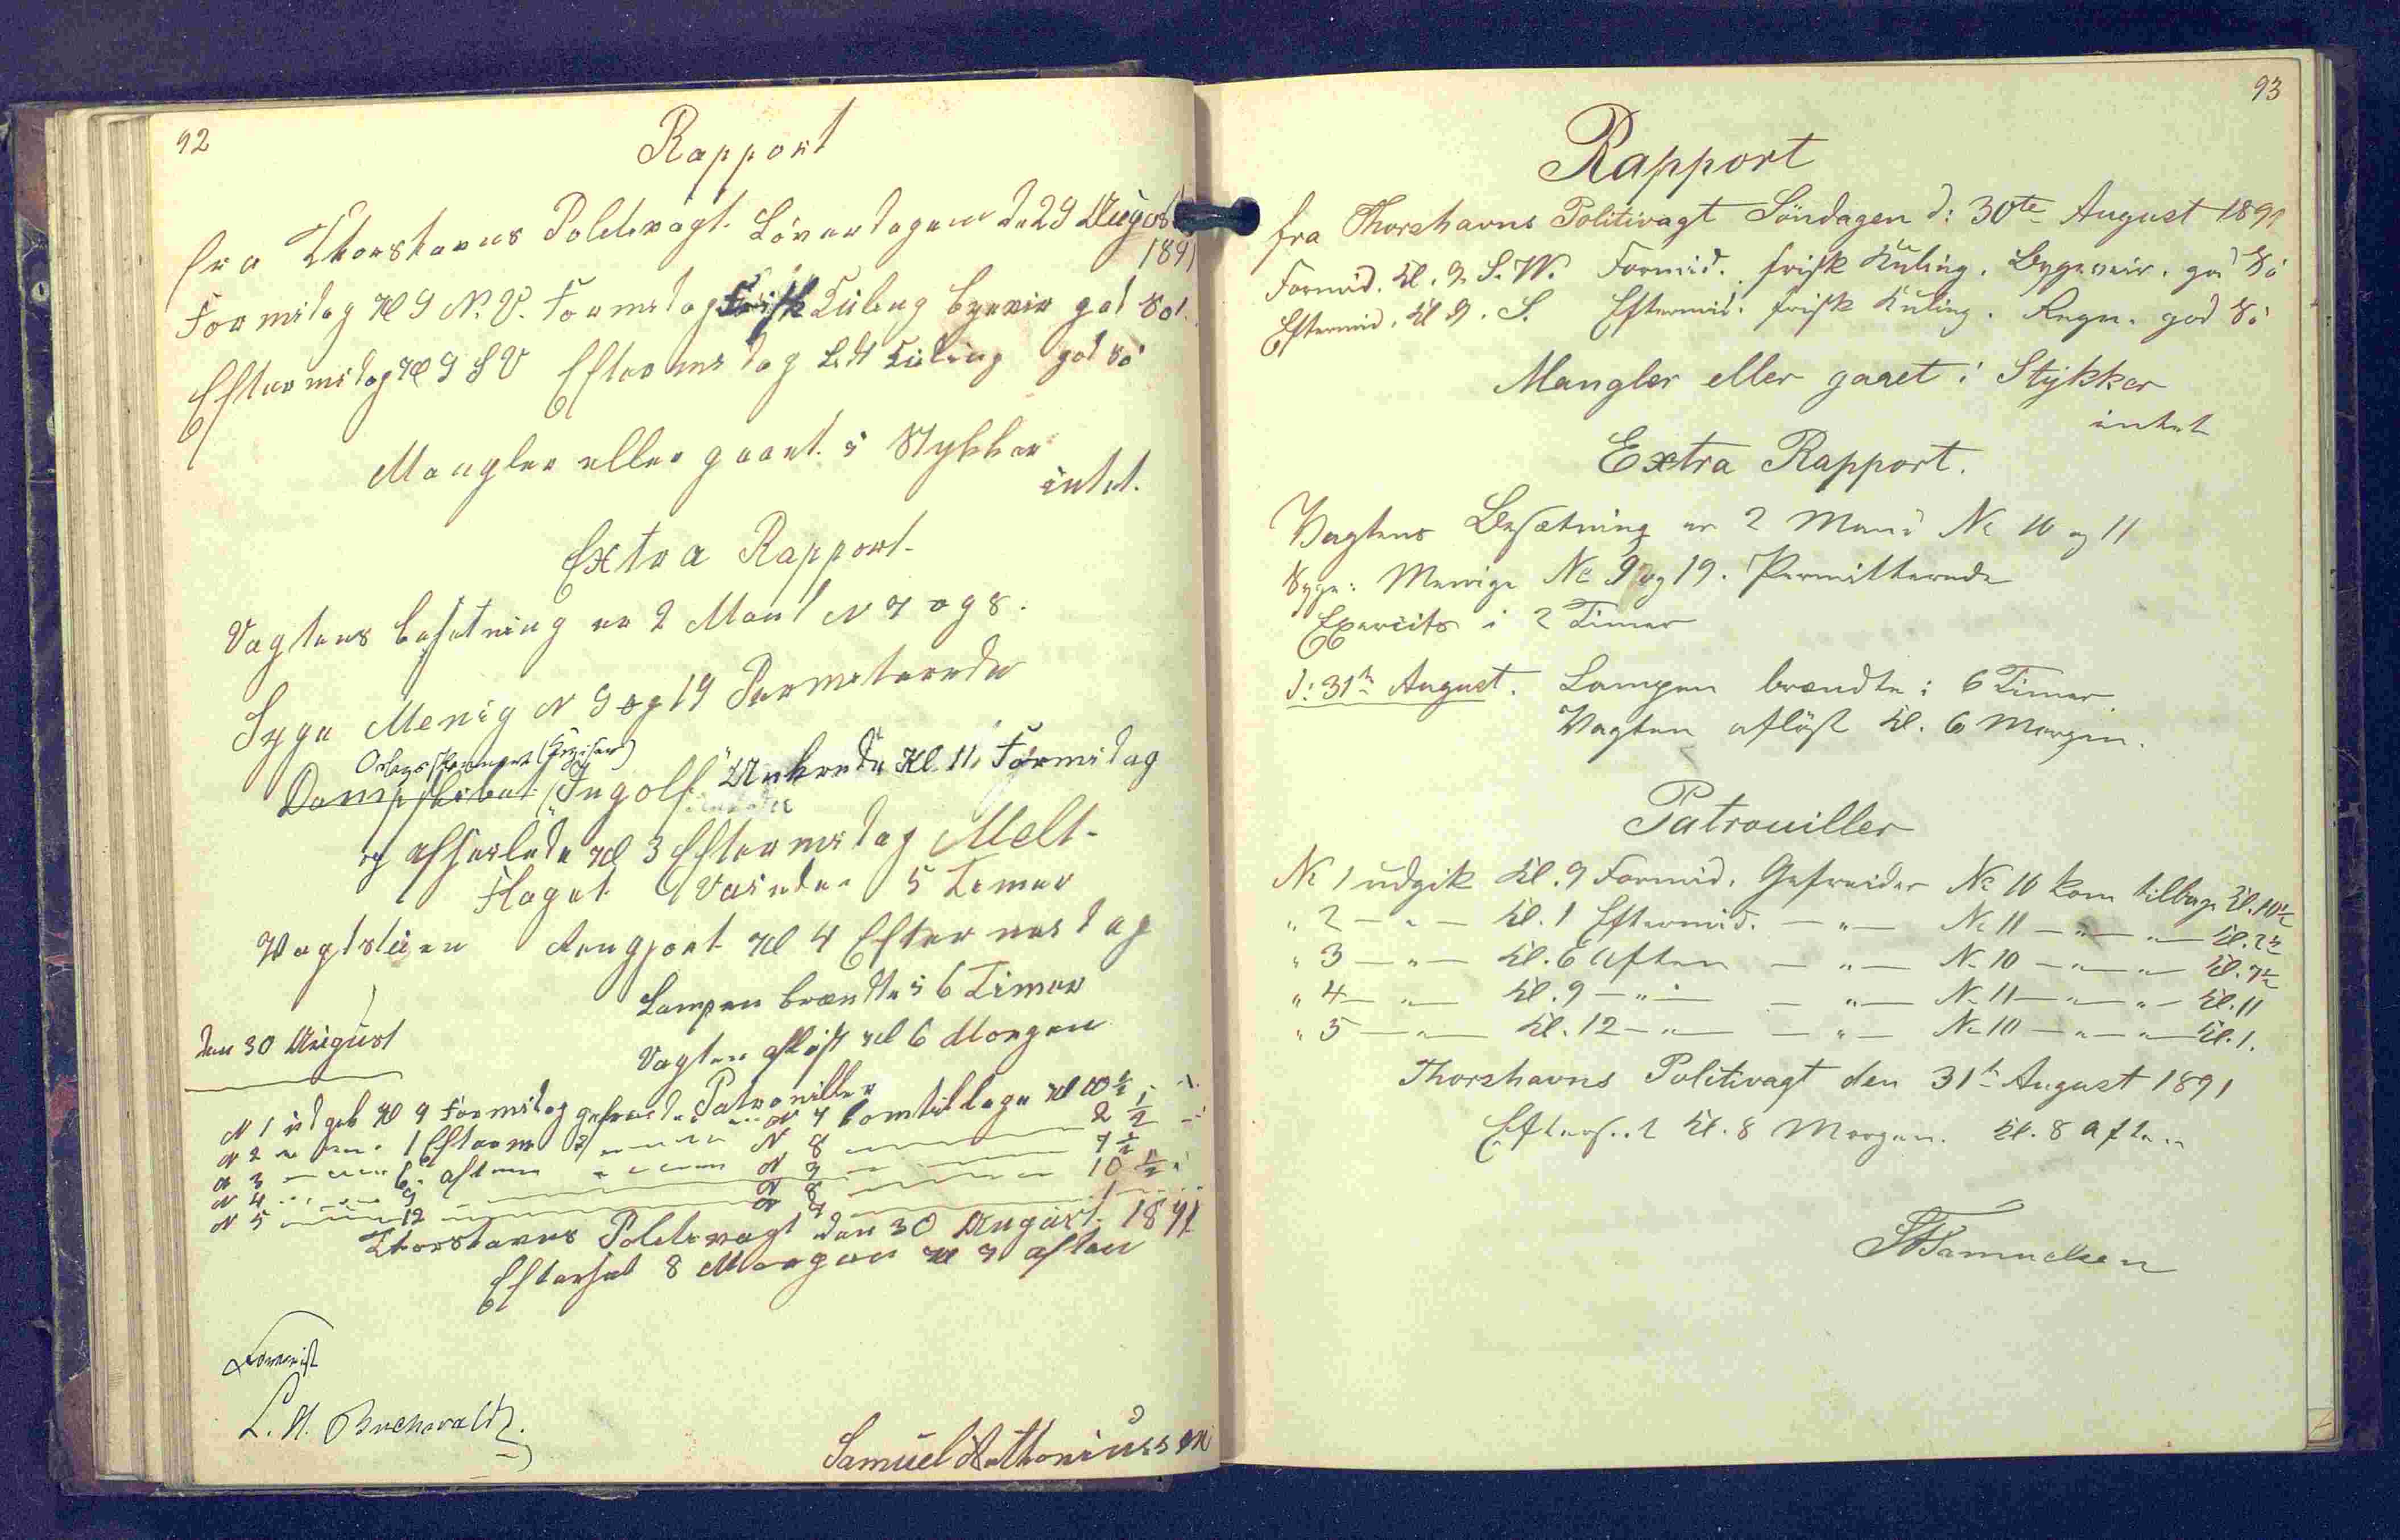 92
Rapport
fra Thorshavns Poletivagt Löverdagen d. 29 August
1891
Formidag Kl 9 N.V. Formidag Frisk Kuling byevir god Sö.
Eftermidag Kl 9 S V Eftermidag Let Kuling god Sö
Mangler eller gaaet i Stykker
intet.
Extra Rapport
Vagtens besetning er 2 Mand N 7 og 8.
Syge Menig N 9 og 19 Permeterede
Orlogs
Dampskibet "Ingolf" Ankrede Kl. 11 Formidag
og afseilede Kl 3 Eftermidag
Flaget Vaiede i 5 Timer
Vagtstuen Rengjort Kl 4 Eftermidag
Lampen brændte i 6 Timer
den 30 August
Vagten aflöst Kl 6 Morgen
Patrouiller
N 1 udgik Kl 9 Formidag gefreider N 7 kom tilbage Kl 10 1/2
N 2 1 Efterm N 8 2 1/2
N 3 6 aften N 7 7 1/2
N 4 9 N 8 10 1/2
N 5 12 N 7 1
Thorshavns Poletivagt den 30 August 1891
Eftersat 8 Morgen Kl 7 aften
Forevist
L. H. Buchwaldt.
Samuel Anthoniussen
93
Rapport
fra Thorshavns Politivagt Söndagen d: 30te August 1891
Formid. Kl. 9. S.W. Formid. frisk Kuling. Bygeveir. god Sö
Eftermid. Kl 9. S. Eftermid. frisk Kuling. Regn. god Sö
Mangler eller gaaet i Stykker
intet
Extra Rapport.
Vagtens Besætning er 2 Mand No 10 og 11
Syge: Menige No 9 og 19. Permitterede
Exercits i 2 Timer
d: 31te August. Lampen brændte i 6 Timer
Vagten aflöst Kl. 6 Morgen.
Patrouiller
No 1 udgik Kl. 9 Formid. Gefreider No 10 kom tilbage Kl. 10 1/2
" 2 — " — Kl. 1 Eftermid. — " — No 11 — " — " — Kl. 2 1/2
" 3 — " — Kl. 6 Aften — " — No 10 — " — " — Kl. 7 1/2
" 4 — " — Kl. 9 — " — — " — No 11 — " — " — Kl. 11
" 5 — " — Kl. 12 — " — — " — No 10 — " — " — Kl. 1.
Thorshavns Politivagt den 31te August 1891
Efterset Kl. 8 Morgen. Kl. 8 Aften
Samuelsen